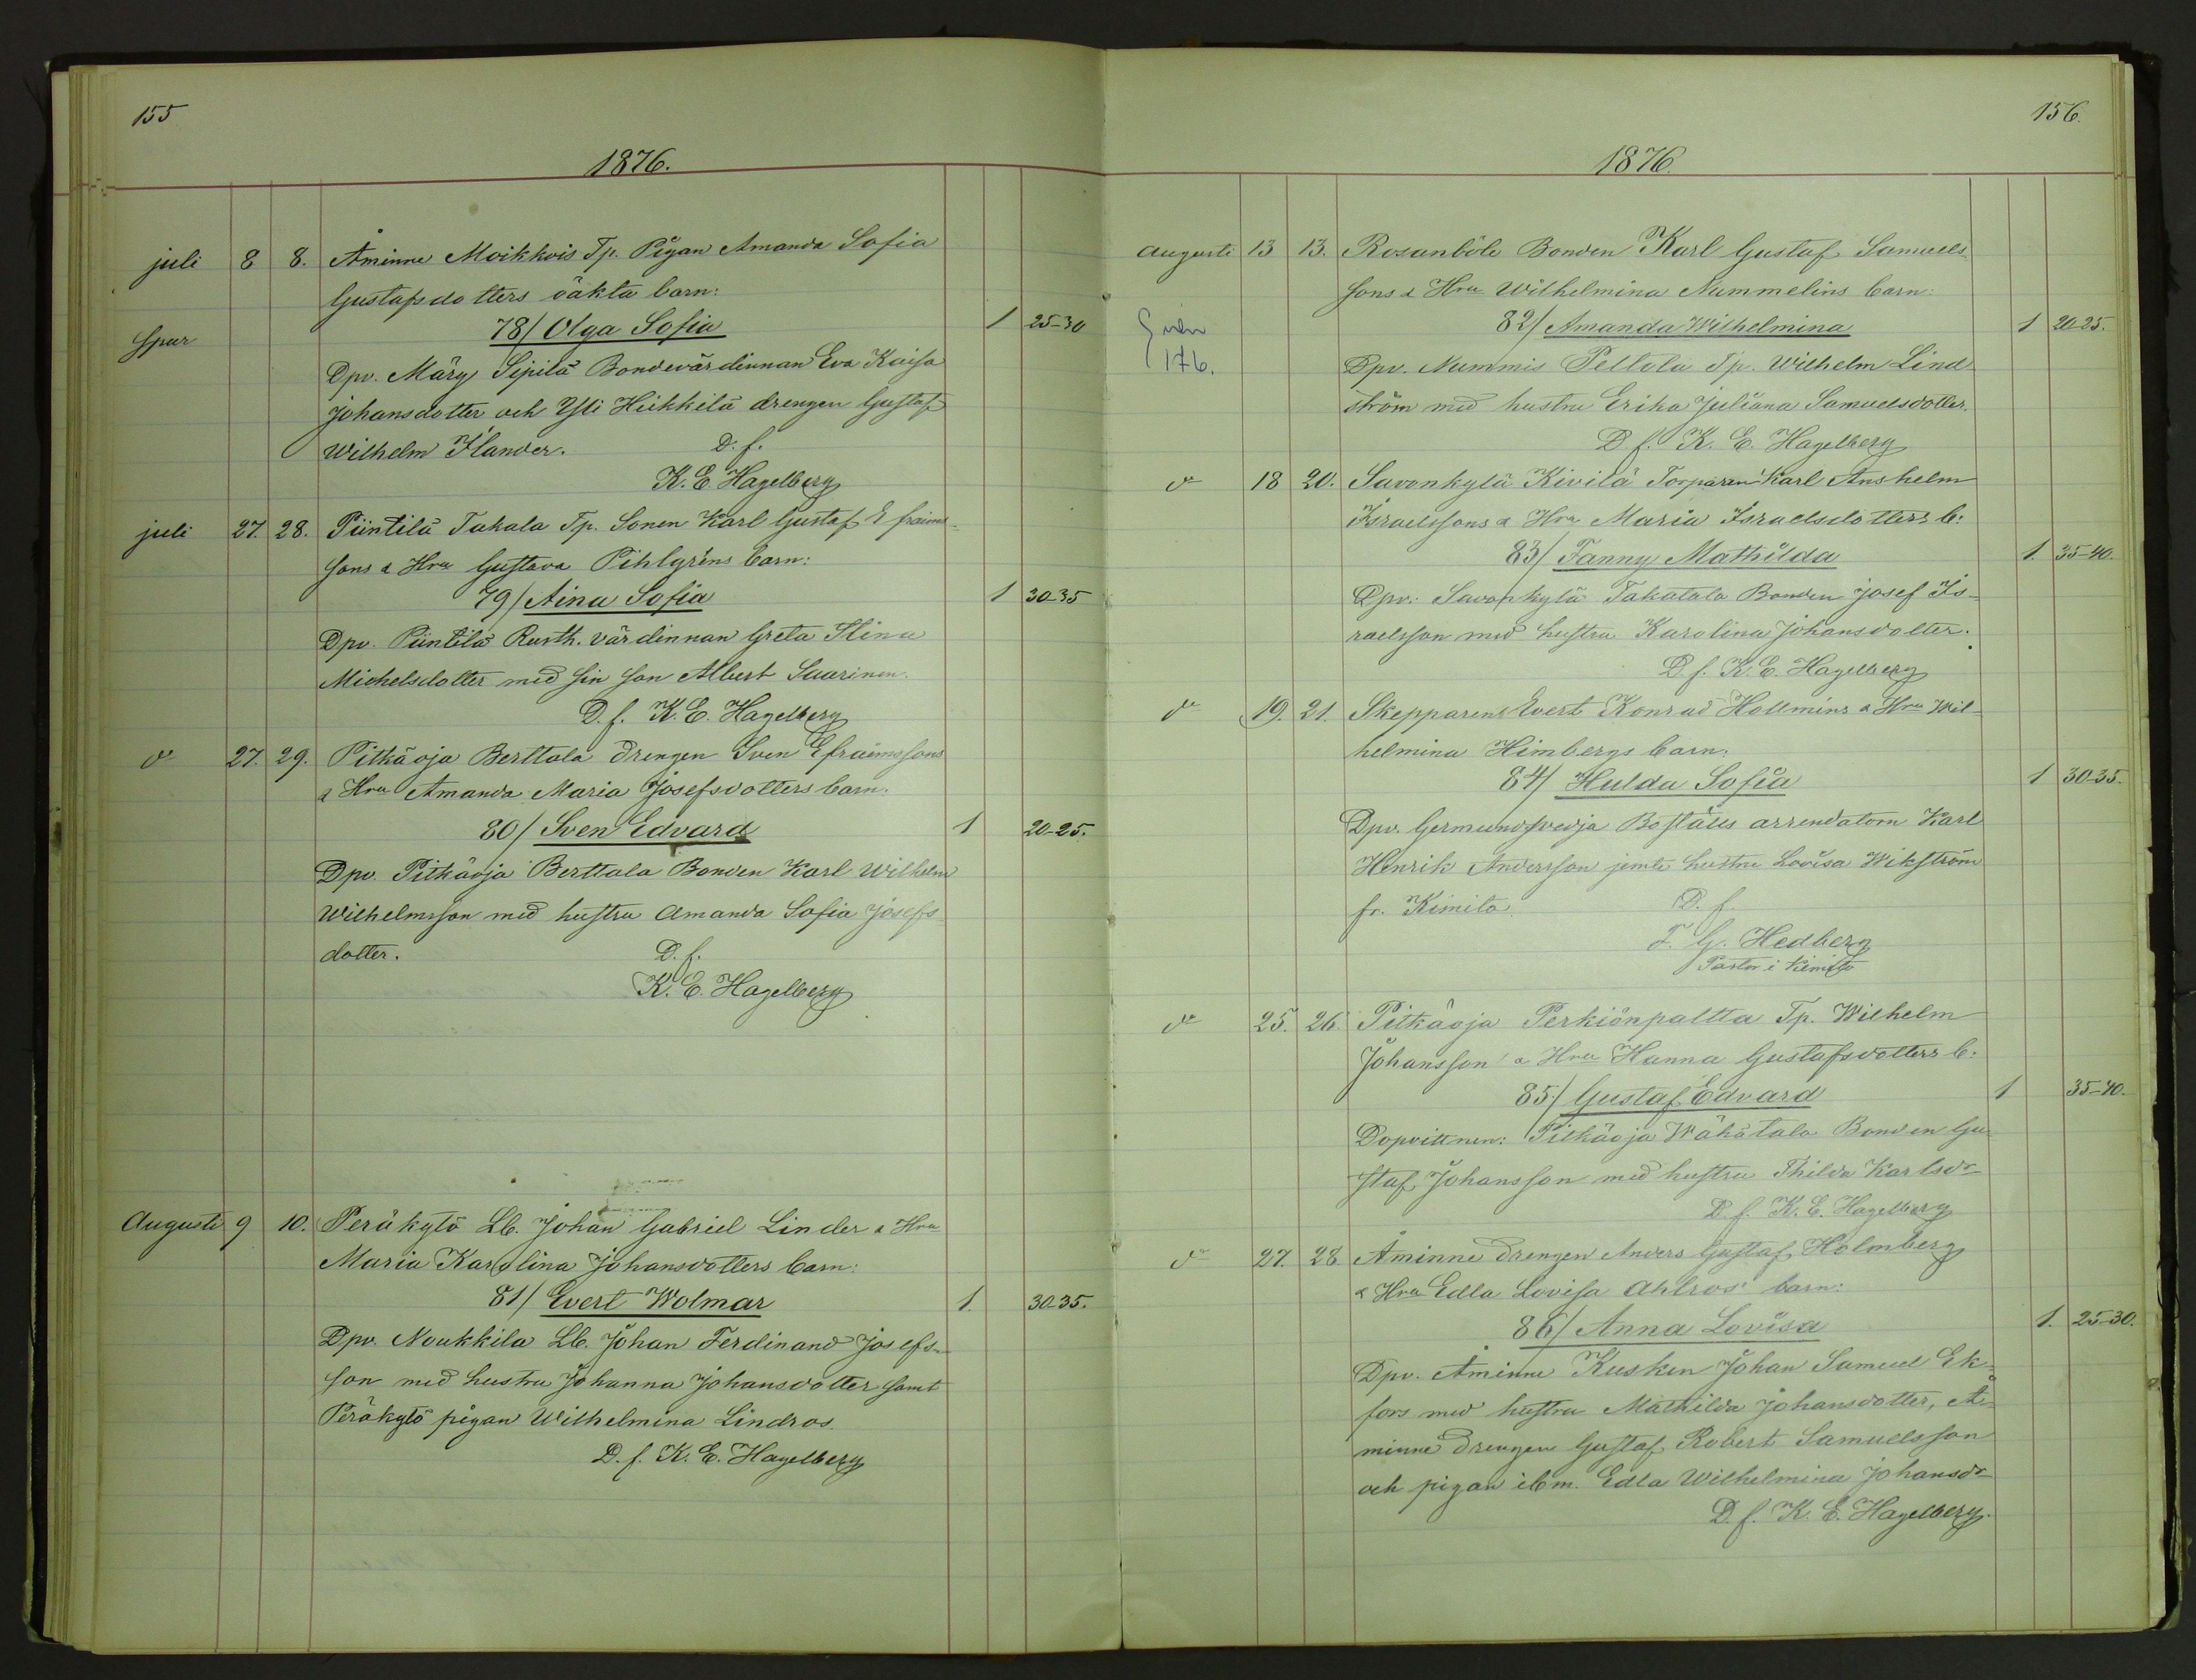 155
1876.
juli 8 8. Åminne Moikkois Tp. Pigan Amanda Sofia
Gustafsdotters oäkta barn:
78/ Olga Sofia 1 25-30
Spur
Dpv. Märy Sipilä Bondevärdinnan Eva Kaisa
Johansdotter och Yli Heikkilä drengen Gustaf
Wilhelm Ilander. D. f.
K. E. Hagelberg
juli 27. 28. Piintilä Takala Tp. Sonen Karl Gustaf Efraims-
sons & Hru Gustava Pihlgréns barn:
79/ Aina Sofia 1 30-35
Dpv. Piintilä Rusth. värdinnan Greta Stina
Michelsdotter med sin son Albert Saarinen.
D. f. K. E. Hagelberg
d:o 27. 29. Pitkäoja Berttala drengen Sven Efraimssons
& Hru Amanda Maria Josefsdotters barn.
80/ Sven Edvard 1 20-25.
Dpv. Pitkäoja Berttala Bonden Karl Wilhelm
Wilhelmsson med hustru Amanda Sofia Josefs-
dotter. D. f.
K. E. Hagelberg
Augusti 9 10. Peräkytö Lb. Johan Gabriel Linder & Hru
Maria Karolina Johansdotters barn:
81/ Evert Wolmar 1. 30-35.
Dpv. Noukkila Lb. Johan Ferdinand Josefs-
son med hustru Johanna Johansdotter samt
Peräkytö pigan Wilhelmina Lindros.
D. f. K. E. Hagelberg
156.
1876.
Augusti 13 13. Rosanböle Bonden Karl Gustaf Samuels
sons & Hru Wilhelmina Nummelins barn:
82/ Amanda Wilhelmina 1 20-25.
176.
Dpv. Nummis Peltola Tp. Wilhelm Lind
ström med hustru Erika Juliana Samuelsdotter.
D. f. K. E. Hagelberg
d:o 18 20. Savonkylä Kivilä Torparen Karl Anshelm
Israelssons & Hru Maria Israelsdotters b:
83/ Fanny Mathilda 1. 35-40.
Dpv: Savonkylä Takatalo Bonden Josef Is-
raelsson med hustru Karolina Johansdotter.
D. f. K. E. Hagelberg
d:o 19. 21. Skepparens Evert Konrad Hollmins & Hru Wil-
helmina Himbergs barn:
84/ Hulda Sofia 1 30-35.
Dpv. Germundsvedja Boställs arrendatorn Karl
Henrik Andersson jemte hustru Lovisa Wikström
fr. Kimito D. f.
F. G. Hedberg
Pastor i Kimito
d:o 25. 26. Pitkäoja Perkiönpaltta Tp. Wilhelm
Johansson & Hru Hanna Gustafsdotters b.
85/ Gustaf Edvard 1 35-40.
Dopvittnen: Pitkäoja Wähätalo Bonden Gu-
staf Johansson med hustru Thilda Karlsdr
D. f. K. E. Hagelberg
d:o 27. 28 Åminne drengen Anders Gustaf Holmberg
& Hru Edla Lovisa Ahlros' barn:
86/ Anna Lovisa 1. 25-30.
Dpv. Åminne Kusken Johan Samuel Ek-
fors med hustru Mathilda Johansdotter, Å-
minne drengen Gustaf Robert Samuelsson
och pigan ibm. Edla Wilhelmina Johansdr
D. f. K. E. Hagelberg.